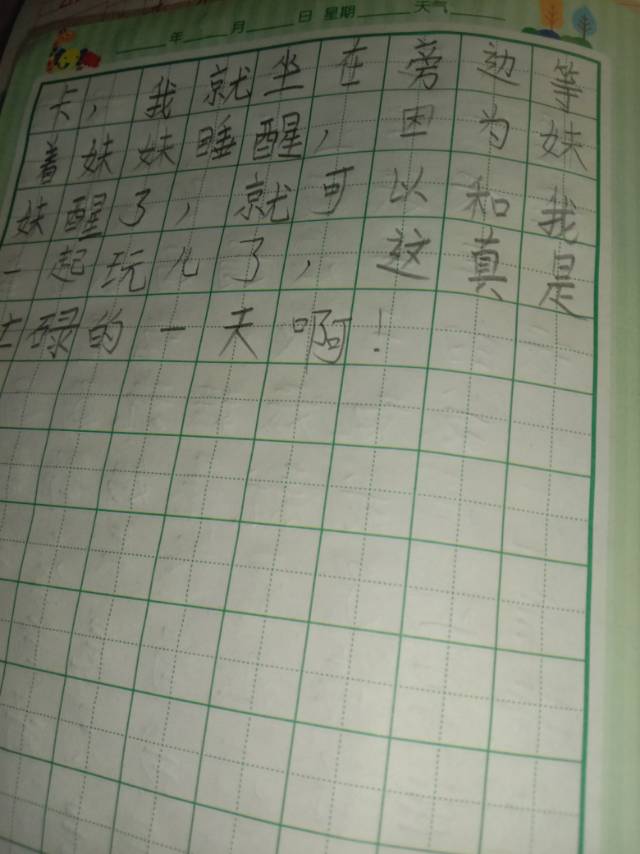 年 月 日 星期 天气
卡，我就坐在旁边等
着妹妹睡醒，因为妹
妹醒了，就可以和我
一起玩儿了，这真是
碌的一天啊！